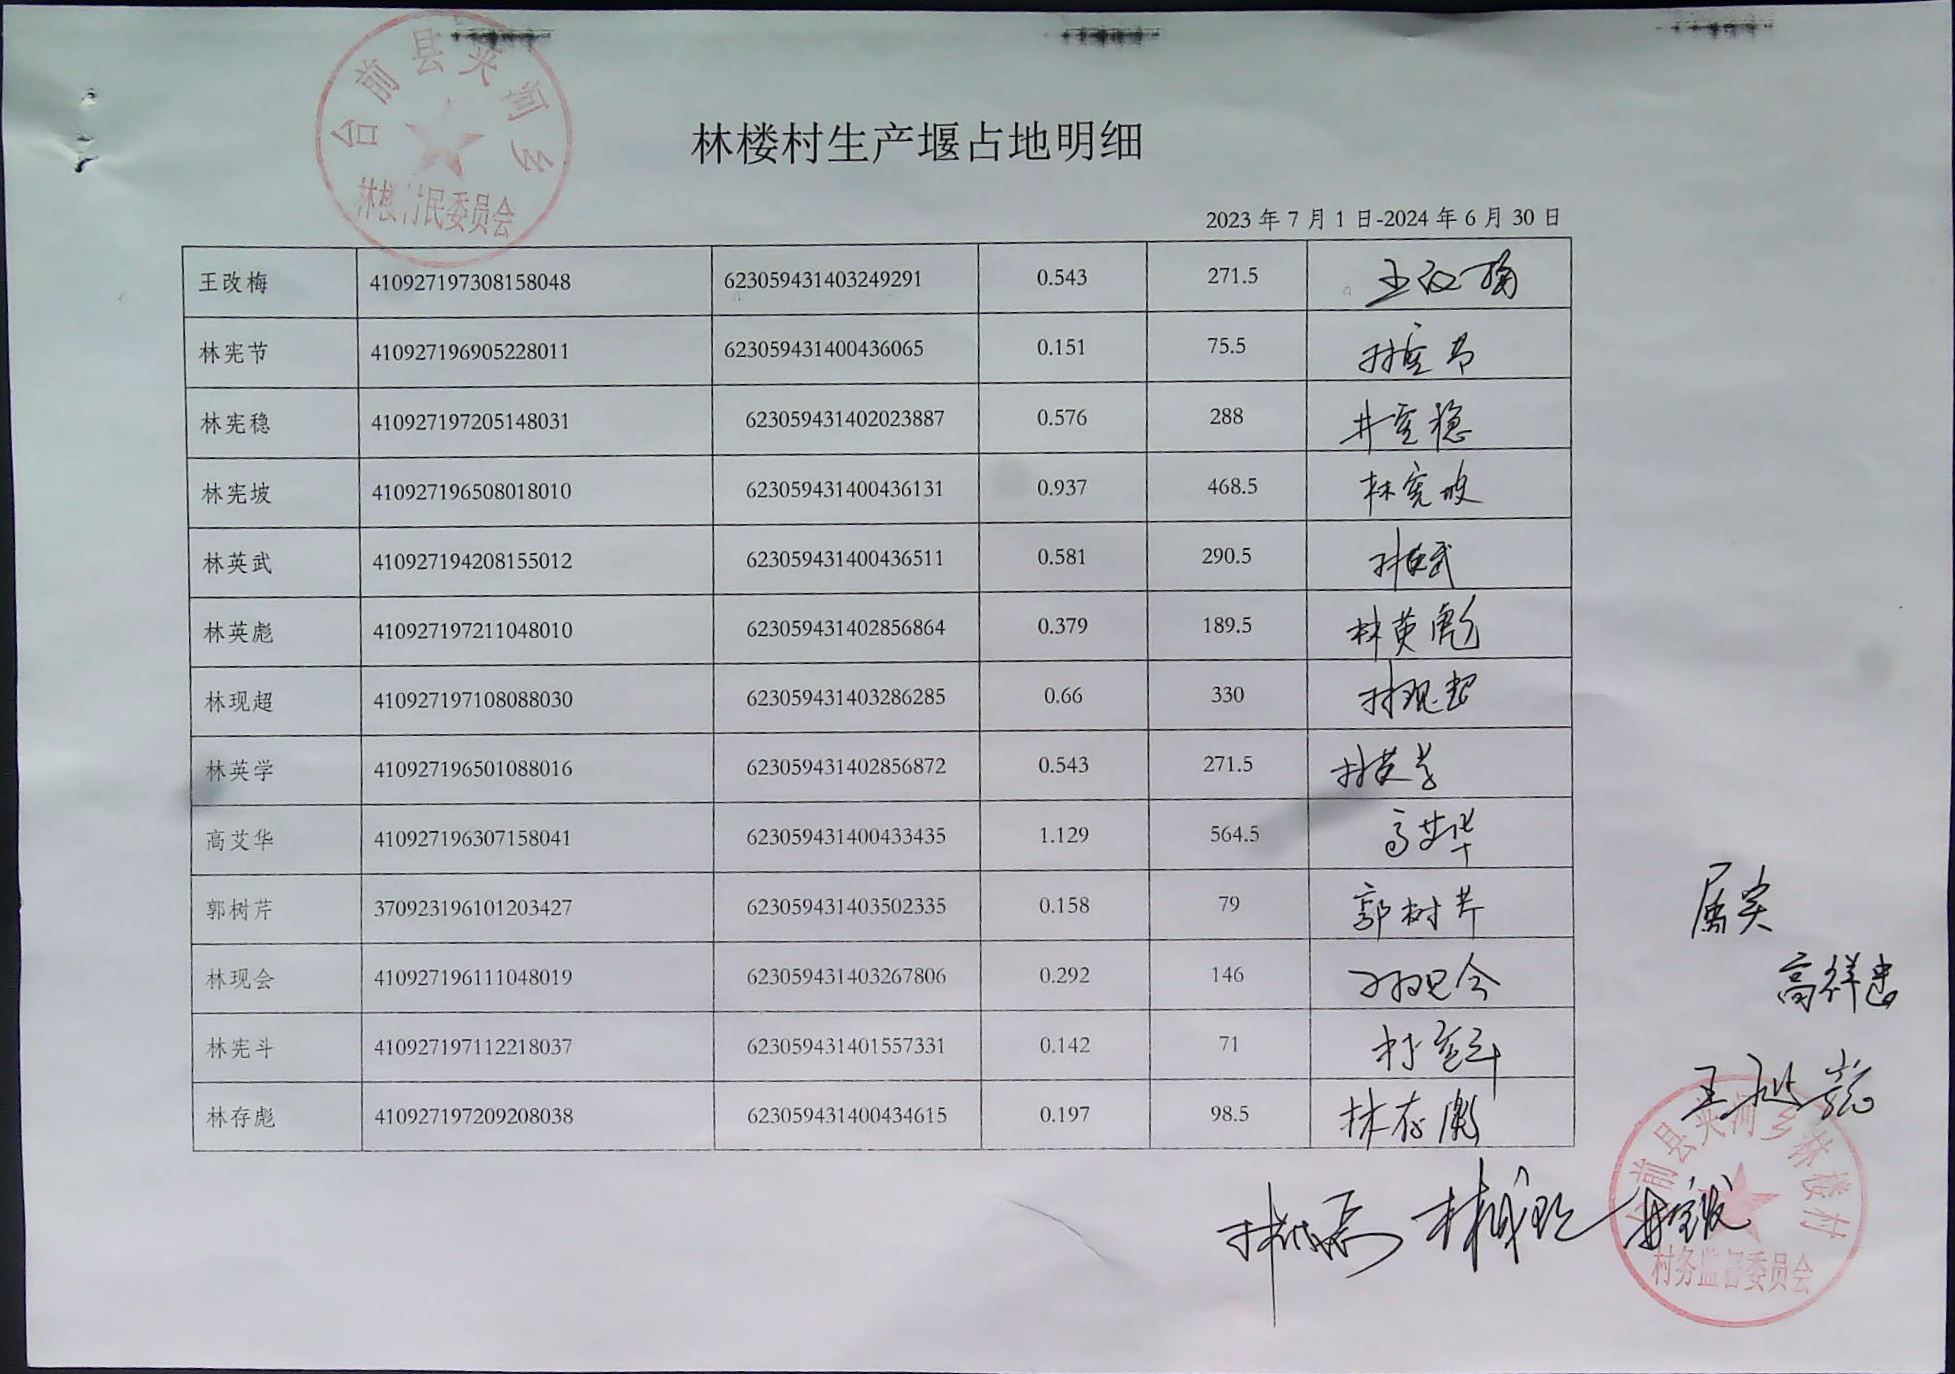 台前县夹河乡
林楼村民委员会
林楼村生产堰占地明细
2023年7月1日-2024年6月30日
王改梅 410927197308158048 623059431403249291 0.543 271.5 王改梅
林宪节 410927196905228011 623059431400436065 0.151 75.5 林宪节
林宪稳 410927197205148031 623059431402023887 0.576 288 林宪稳
林宪坡 410927196508018010 623059431400436131 0.937 468.5 林宪坡
林英武 410927194208155012 623059431400436511 0.581 290.5 林英武
林英彪 410927197211048010 623059431402856864 0.379 189.5 林英彪
林现超 410927197108088030 623059431403286285 0.66 330 林现超
林英学 410927196501088016 623059431402856872 0.543 271.5 林英学
高艾华 410927196307158041 623059431400433435 1.129 564.5 高艾华
郭树芹 370923196101203427 623059431403502335 0.158 79 郭树芹
林现会 410927196111048019 623059431403267806 0.292 146 林现会
林宪斗 410927197112218037 623059431401557331 0.142 71 林宪斗
林存彪 410927197209208038 623059431400434615 0.197 98.5 林存彪
属实
高祥忠
台前县夹河乡林楼村
村务监督委员会